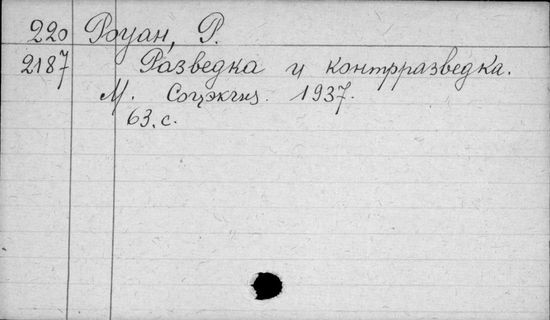 220 Роуан, Р.
2187 Разведка и контрразведка.
М. Соцэкгиз. 1937.
63. с.